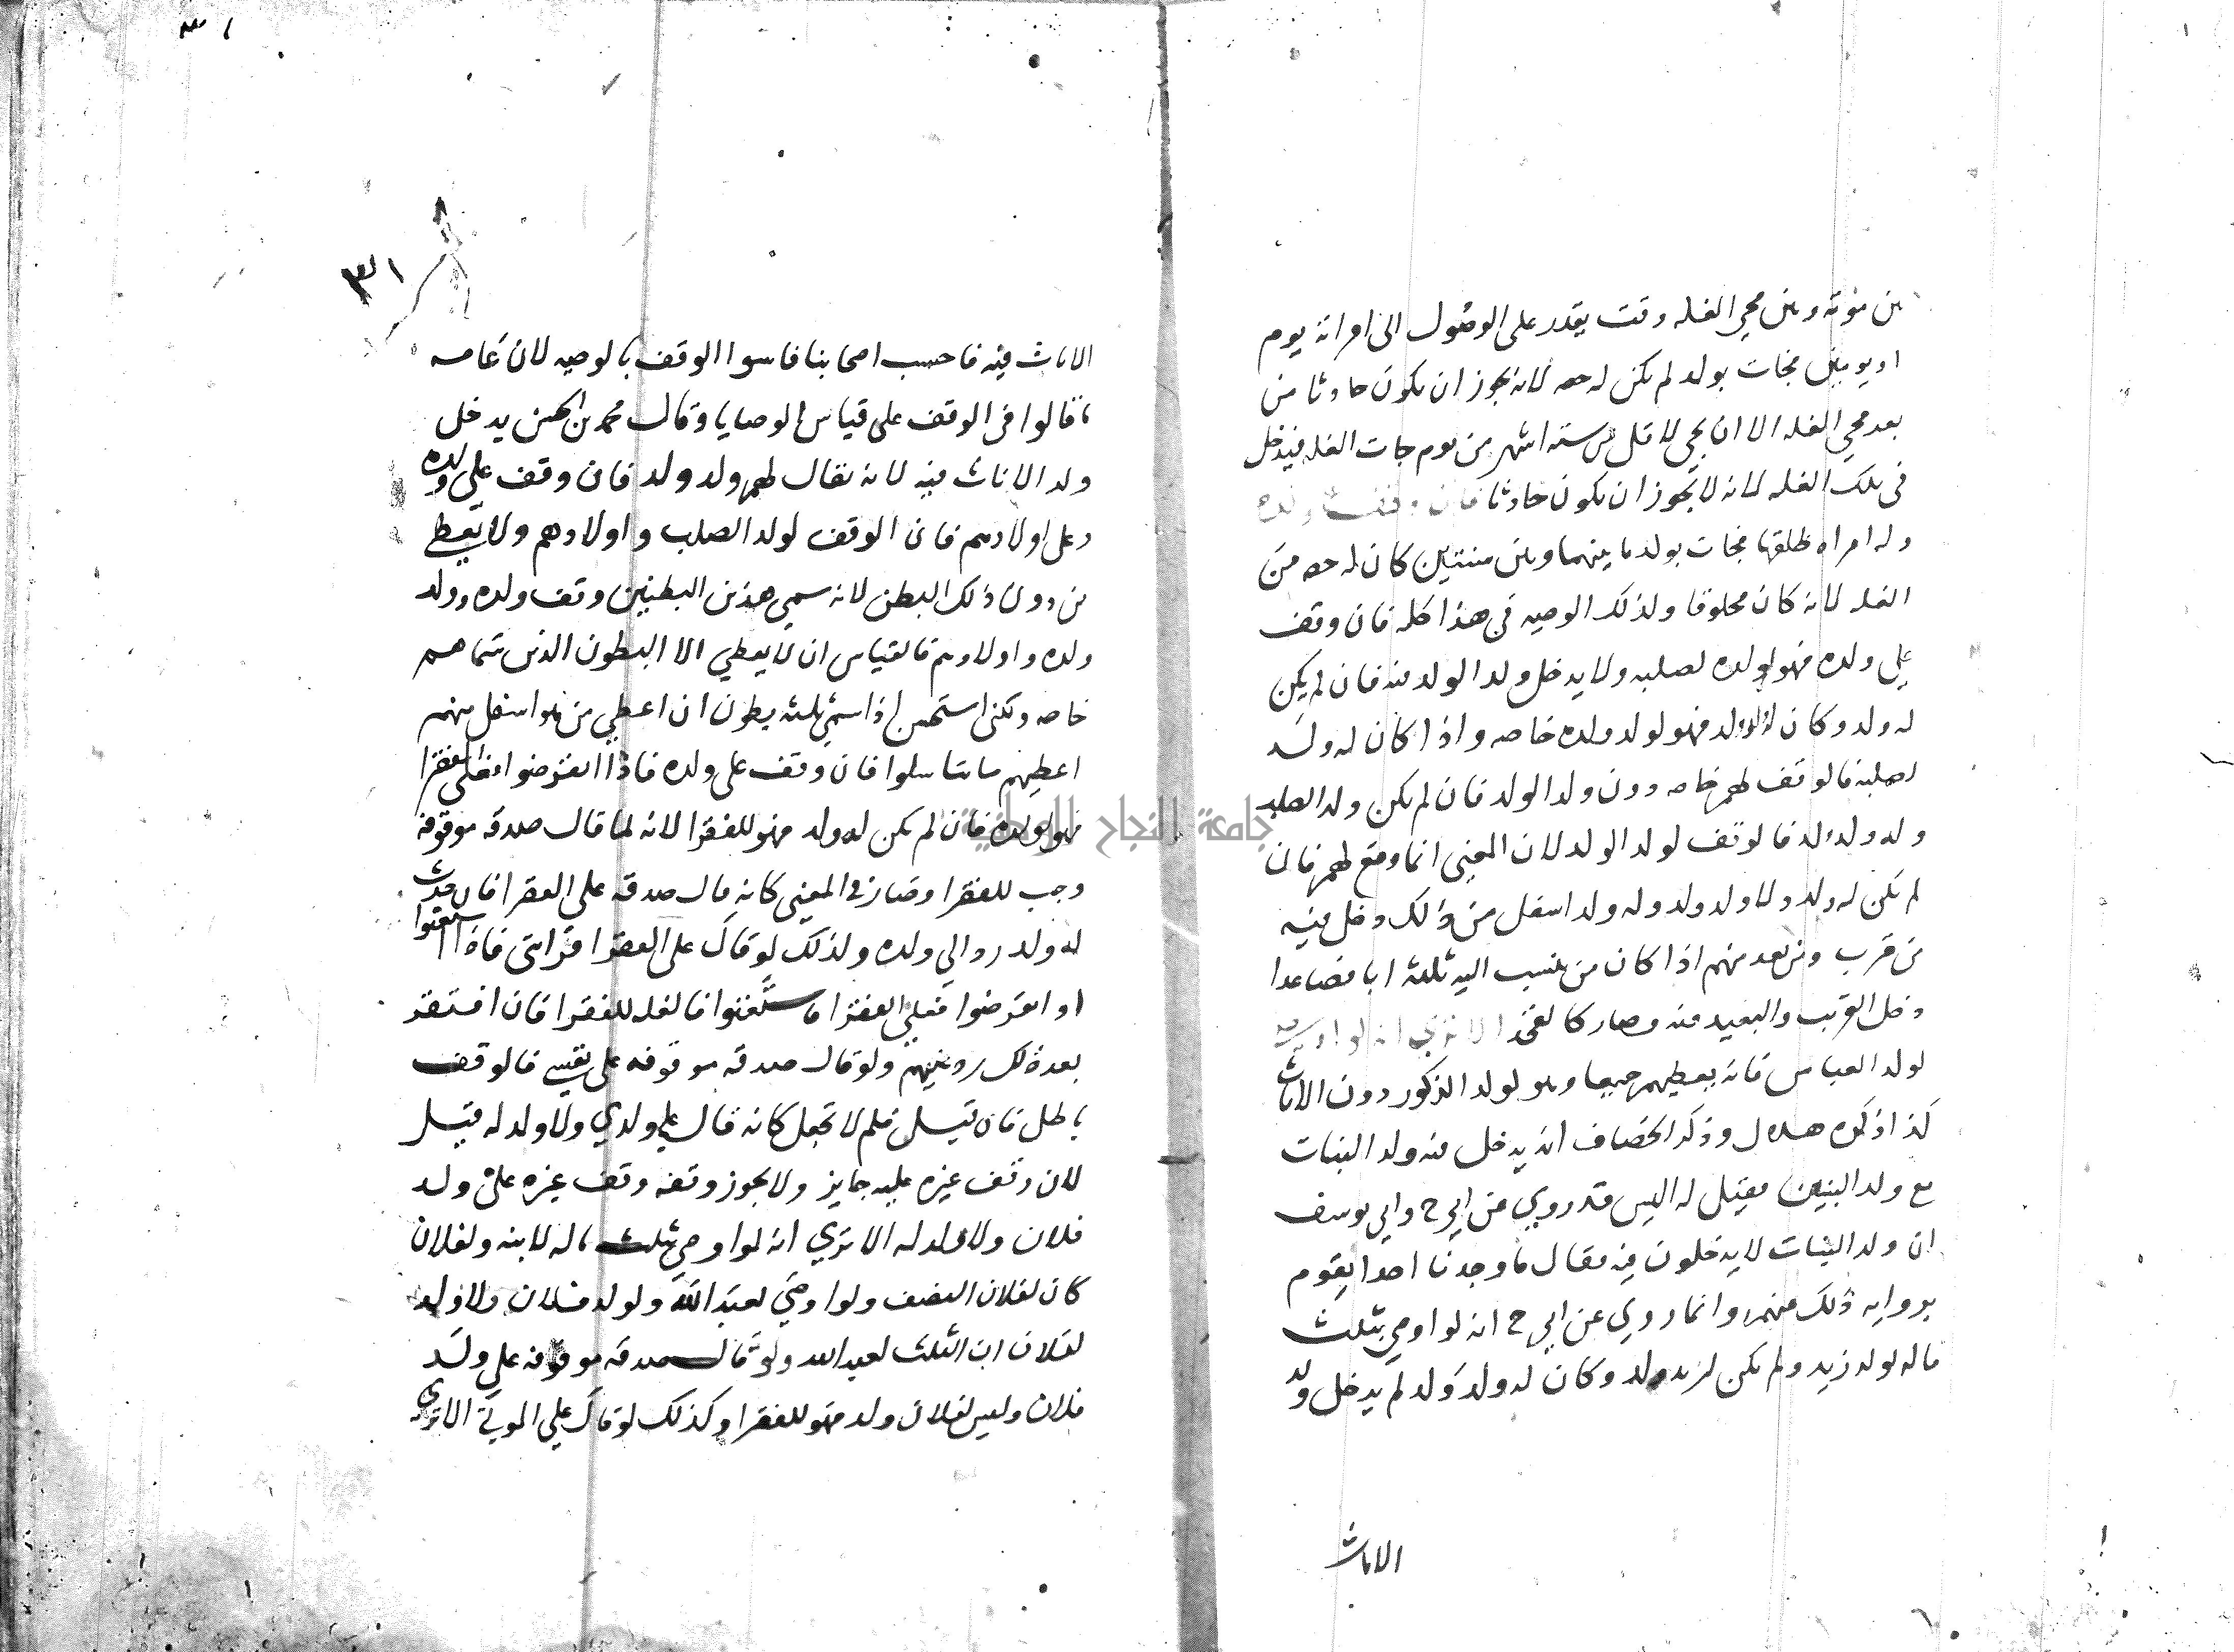 بين موته وبين مجي الغله وقت يقدر على الوصول الى امراته يوم
او يومين فجات بولد لم يكن له حصه لانه يجوز ان يكون حادثا من
بعد مجي الغله الا ان يجي لاقل من سته اشهر من يوم جات الغله فيدخل
فى تلك الغله لانه لا يجوز ان يكون حادثا فان وقف على ولده
وله امراه طلقها فجات بولد ما بينهما وبين سنتين كان له حصه من
الغله لانه كان مخلوقا ولذلك الوصيه فى هذا كله فان وقف
على ولده فهو لولده لصلبه ولا يدخل ولد الولد فيه فان لم يكن
له ولد وكان له ولد ولد فهو لولد ولده خاصه واذا كان له ولد
لصلبه فالوقف لهم خاصه دون ولد الولد فان لم يكن ولد الصلب
وله ولد ولد فالوقف لولد الولد لان المعنى انما وقع لهم فان
لم يكن له ولد ولا ولد ولد وله ولد اسفل من ذلك دخل فيه
من قرب ومن بعد منهم اذا كان من ينسب اليه ثلثه ابا فصاعدا
دخل القريب والبعيد فيه وصار كالفخذ الا ترى انه لو اوصى
لولد العباس فانه يعطيهم جميعا وهو لولد الذكور دون الاناث
كذا ذكره هلال وذكر الخصاف انه يدخل فيه ولد البنات
مع ولد البنين فقيل له اليس قد روي عن ابي ح وابي يوسف
ان ولد البنات لا يدخلون فيه فقال ما وجدنا احدا يقوم
بروايه ذلك عنهم وانما روي عن ابي ح انه لو اوصى بثلث
ماله لولد زيد ولم يكن لزيد ولد وكان له ولد ولد لم يدخل ولد
الاناث
٣١
٣١
الاناث فيه فاحسب اصحابنا قاسوا الوقف بالوصيه لان عامه
ما قالوا فى الوقف على قياس الوصايا وقال محمد بن الحسن يدخل
ولد الاناث فيه لانه يقال لهم ولد ولد فان وقف على ولده
وعلى اولادهم فان الوقف لولد الصلب واولادهم ولا يعطى
من دون ذلك البطن لانه سمى هذين البطنين وقف ولده وولد
ولده واولادهم فالقياس ان لا يعطي الا البطون الذين سماهم
خاصه ولكنى استحسن اذا سمى ثلثه بطون ان اعطي من هو اسفل منهم
اعطيهم ما تناسلوا فان وقف على ولده فاذا انقرضوا فعلى الفقرا
فهو لولده فان لم يكن له ولد فهو للفقرا لانه لما قال صدقه موقوفه
وجب للفقرا وصار في المعنى كانه قال صدقه على الفقرا فان حدث
له ولد رد الي ولده ولذلك لو قال على الفقرا قرابتى فاذا استغنوا
او انقرضوا فعلى الفقرا فاستغنوا فالغله للفقرا فان افتقر
بعد ذلك رد عليهم ولو قال صدقه موقوفه على نفسي فالوقف
باطل فان قيل فلم لا تجعل كانه قال على ولدي ولا ولد له قيل
لان وقف غيره عليه جايز ولا يجوز وقفه وقف غيره على ولد
فلان ولا ولد له الا تري انه لو اوصى بثلث ماله لابنه ولفلان
كان لفلان النصف ولو اوصى لعبد الله ولولد فلان ولا ولد
لفلان ان الثلث لعبد الله ولو قال صدقه موقوفه على ولد
فلان وليس لفلان ولد فهو للفقرا وكذلك لو قال على الموتى الا ترى
جامعة النجاح الوطنية